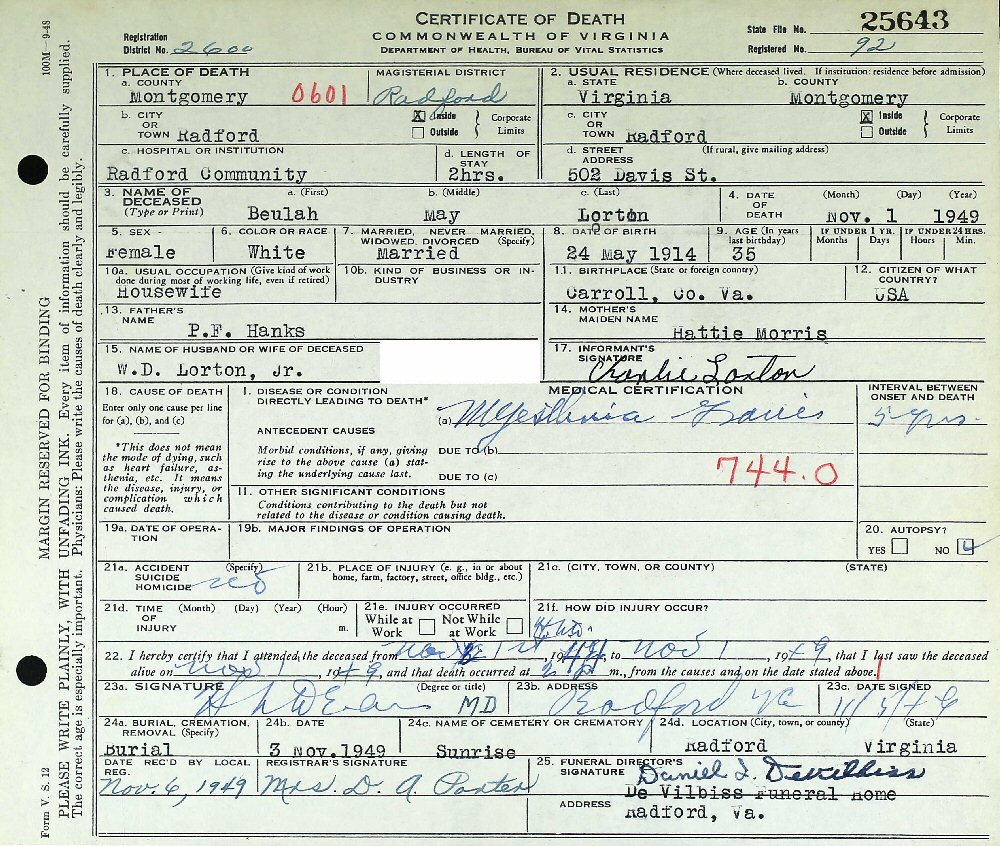 CERTIFICATE OF DEATH
COMMONWEALTH OF VIRGINIA
DEPARTMENT OF HEALTH, BUREAU OF VITAL STATISTICS
Registration District No. 2600
State File No. 25643
Registered No. 92
100M—9-48
MARGIN RESERVED FOR BINDING
PLEASE WRITE PLAINLY, WITH UNFADING INK. Every item of information should be carefully supplied.
The correct age is especially important. Physicians: Please write the causes of death clearly and legibly.
Form V. S. 12
1. PLACE OF DEATH
a. COUNTY
Montgomery 0601
MAGISTERIAL DISTRICT
Radford
b. CITY OR TOWN Radford
X Inside
Outside
Corporate Limits
c. HOSPITAL OR INSTITUTION
Radford Community
d. LENGTH OF STAY
2hrs.
2. USUAL RESIDENCE (Where deceased lived. If institution: residence before admission)
a. STATE
Virginia
b. COUNTY
Montgomery
c. CITY OR TOWN Radford
X Inside
Outside
Corporate Limits
d. STREET ADDRESS (If rural, give mailing address)
502 Davis St.
3. NAME OF DECEASED (Type or Print)
a. (First)
Beulah
b. (Middle)
May
c. (Last)
Lorton
4. DATE OF DEATH (Month) (Day) (Year)
Nov. 1 1949
5. SEX
Female
6. COLOR OR RACE
White
7. MARRIED, NEVER MARRIED, WIDOWED, DIVORCED (Specify)
Married
8. DATE OF BIRTH
24 May 1914
9. AGE (In years last birthday)
35
IF UNDER 1 YR. Months Days
IF UNDER 24 HRS. Hours Min.
10a. USUAL OCCUPATION (Give kind of work done during most of working life, even if retired)
Housewife
10b. KIND OF BUSINESS OR INDUSTRY
11. BIRTHPLACE (State or foreign country)
Carroll, Co. Va.
12. CITIZEN OF WHAT COUNTRY?
USA
13. FATHER'S NAME
P.F. Hanks
14. MOTHER'S MAIDEN NAME
Hattie Morris
15. NAME OF HUSBAND OR WIFE OF DECEASED
W.D. Lorton, Jr.
17. INFORMANT'S SIGNATURE
Charlie Lorton
18. CAUSE OF DEATH
Enter only one cause per line for (a), (b), and (c)
*This does not mean the mode of dying, such as heart failure, asthenia, etc. It means the disease, injury, or complication which caused death.
MEDICAL CERTIFICATION
I. DISEASE OR CONDITION DIRECTLY LEADING TO DEATH*
(a) Myesthenia Gravis
INTERVAL BETWEEN ONSET AND DEATH
5 yrs.
ANTECEDENT CAUSES
Morbid conditions, if any, giving rise to the above cause (a) stating the underlying cause last.
DUE TO (b)
DUE TO (c)
744.0
II. OTHER SIGNIFICANT CONDITIONS
Conditions contributing to the death but not related to the disease or condition causing death.
19a. DATE OF OPERATION
19b. MAJOR FINDINGS OF OPERATION
20. AUTOPSY?
YES NO
21a. ACCIDENT SUICIDE HOMICIDE (Specify)
21b. PLACE OF INJURY (e. g., in or about home, farm, factory, street, office bldg., etc.)
21c. (CITY, TOWN, OR COUNTY) (STATE)
21d. TIME OF INJURY (Month) (Day) (Year) (Hour) m.
21e. INJURY OCCURRED
While at Work
Not While at Work
21f. HOW DID INJURY OCCUR?
22. I hereby certify that I attended the deceased from Nov 1st, 19 49, to Nov 1, 1949, that I last saw the deceased
alive on Nov 1, 1949, and that death occurred at m., from the causes and on the date stated above.
23a. SIGNATURE (Degree or title)
MD
23b. ADDRESS
Radford Va
23c. DATE SIGNED
24a. BURIAL, CREMATION, REMOVAL (Specify)
Burial
24b. DATE
3 Nov.1949
24c. NAME OF CEMETERY OR CREMATORY
Sunrise
24d. LOCATION (City, town, or county) (State)
Radford Virginia
DATE REC'D BY LOCAL REG.
Nov. 6, 1949
REGISTRAR'S SIGNATURE
Mrs. D. A. Porter
25. FUNERAL DIRECTOR'S SIGNATURE
Daniel I. Devilbiss
De Vilbiss Funeral Home
ADDRESS
Radford, Va.